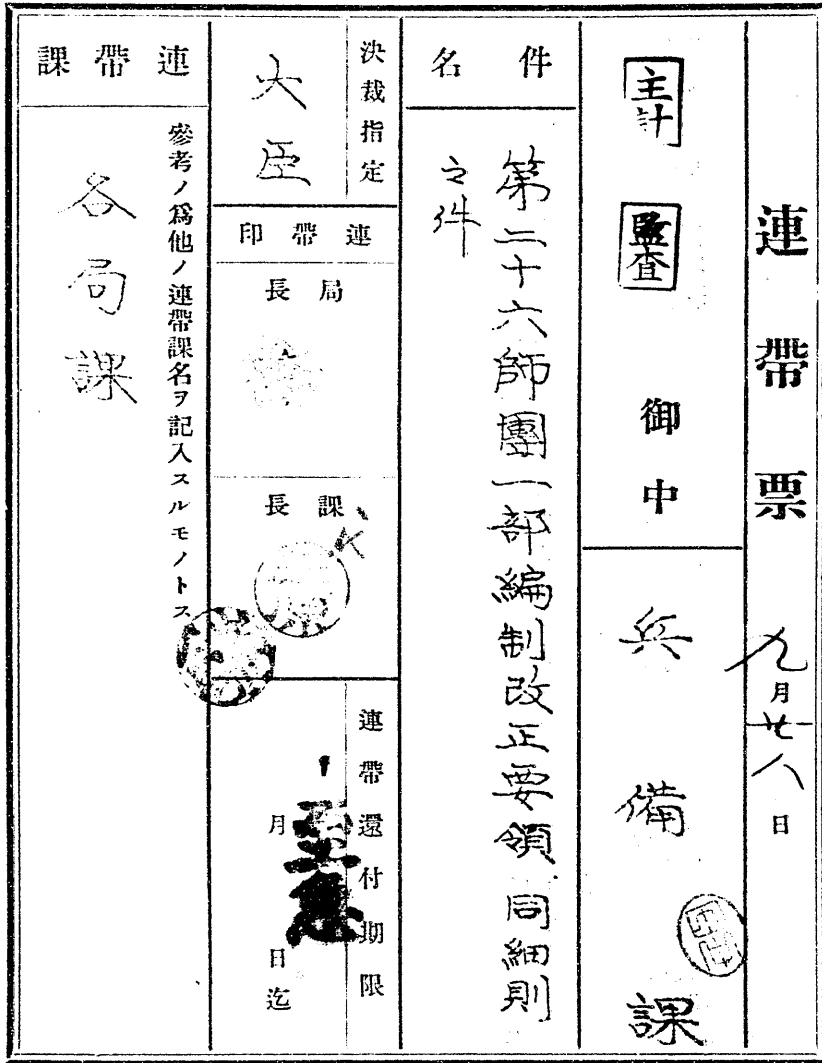 連帶票
九月廿八日
主計
監査
御中
兵備課
件名
第二十六師團一部編制改正要領同細則
之件
決裁指定
大臣
連帶印
局長
課長
連帶還付期限
月 日迄
連帶課
參考ノ爲他ノ連帶課名ヲ記入スルモノトス
各局課